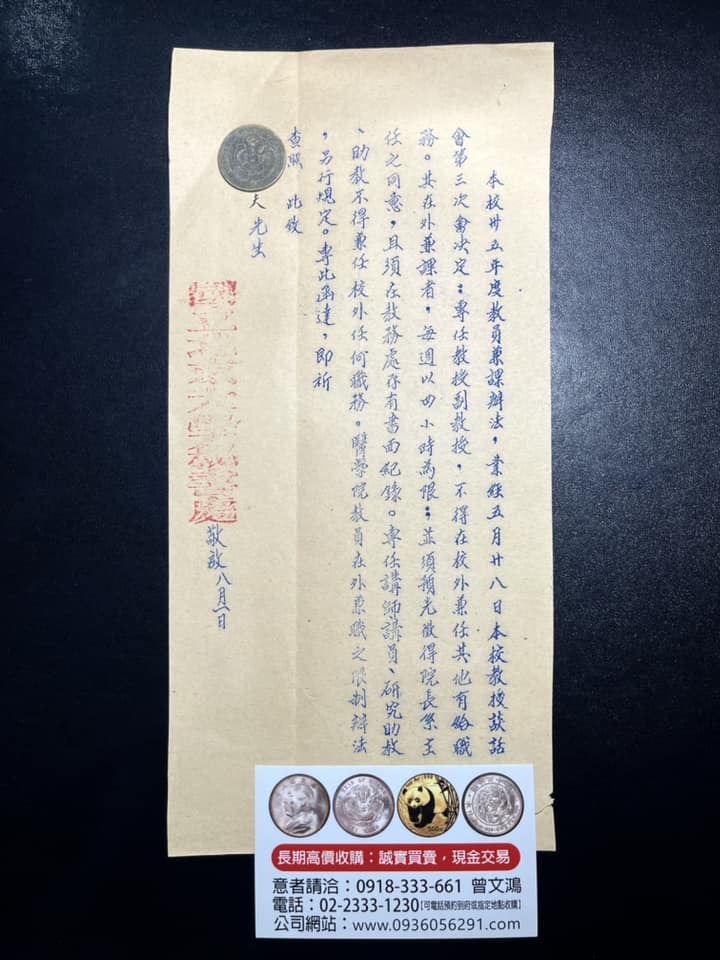 本校卅五年度教員兼課辦法，業經五月廿八日本校教授談話
會第三次會決定：專任教授副教授，不得在校外兼任其他有給職
務。其在外兼課者，每週以四小時為限；並須預先徵得院長系主
任之同意，且須在教務處存有書面紀錄。專任講師講員、研究助教
、助教不得兼任校外任何職務。醫學院教員在外兼職之限制辦法
，另行規定。專此函達，即祈
查照　此致
夫先生
國立北京大學秘書處
敬啟八月一日
長期高價收購：誠實買賣，現金交易
意者請洽：0918-333-661 曾文鴻
電話：02-2333-1230【可電話預約到府或指定地點收購】
公司網站：www.0936056291.com